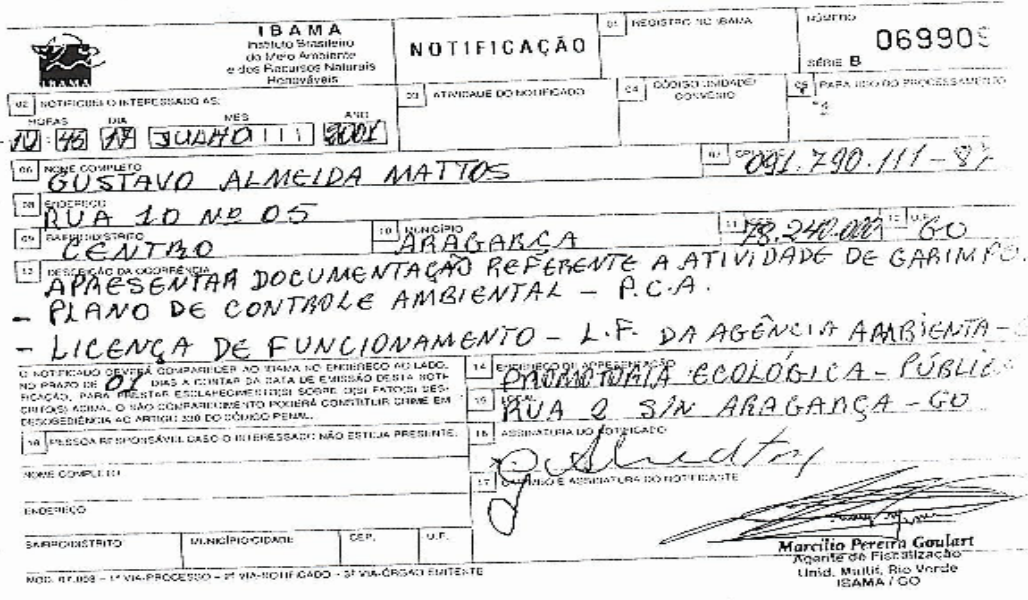 IBAMA
Instituto Brasileiro
do Meio Ambiente
e dos Recursos Naturais
Renováveis
IBAMA
NOTIFICAÇÃO
01 REGISTRO NO IBAMA
NÚMERO
069909
SÉRIE B
02 NOTIFIQUEI O INTERESSADO ÀS:
HORAS DIA MÊS ANO
: 45 17 JULHO 2001
03 ATIVIDADE DO NOTIFICADO
04 CÓDIGO UNIDADE/
CONVÊNIO
05 PARA USO DO PROCESSAMENTO
06 NOME COMPLETO
GUSTAVO ALMEIDA MATTOS
07
091.790.111-87
08 ENDEREÇO
RUA 10 Nº 05
09 BAIRRO/DISTRITO
CENTRO
10 MUNICÍPIO
ARAGARÇA
11 CEP
78.240.000
12 U.F.
GO
13 DESCRIÇÃO DA OCORRÊNCIA
APRESENTAR DOCUMENTAÇÃO REFERENTE A ATIVIDADE DE GARIMPO.
- PLANO DE CONTROLE AMBIENTAL - P.C.A.
- LICENÇA DE FUNCIONAMENTO - L.F. DA AGÊNCIA AMBIENTA-
O NOTIFICADO DEVERÁ COMPARECER AO IBAMA NO ENDEREÇO AO LADO,
NO PRAZO DE 01 DIAS A CONTAR DA DATA DE EMISSÃO DESTA NOTI-
FICAÇÃO, PARA PRESTAR ESCLARECIMENTO(S) SOBRE O(S) FATO(S) DES-
CRITO(S) ACIMA. O NÃO COMPARECIMENTO PODERÁ CONSTITUIR CRIME EM
DESOBEDIÊNCIA AO ARTIGO 330 DO CÓDIGO PENAL.
14 ENDEREÇO DE APRESENTAÇÃO
PROMOTORIA ECOLÓGICA - PÚBLIC
15 LOCAL
RUA 2 S/N ARAGARÇA - GO
18 PESSOA RESPONSÁVEL CASO O INTERESSADO NÃO ESTEJA PRESENTE.
16 ASSINATURA DO NOTIFICADO
NOME COMPLETO
17 CARIMBO E ASSINATURA DO NOTIFICANTE
ENDEREÇO
BAIRRO/DISTRITO MUNICÍPIO/CIDADE CEP. U.F.
Marcílio Pereira Goulart
Agente de Fiscalização
Unid. Multif. Rio Verde
IBAMA / GO
MOD. 07.003 - 1ª VIA-PROCESSO - 2ª VIA-NOTIFICADO - 3ª VIA-ÓRGÃO EMITENTE